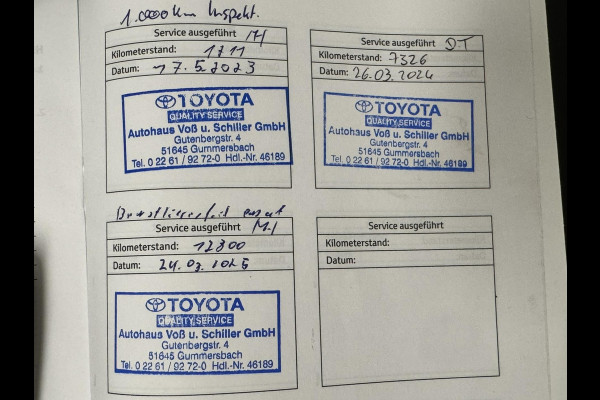 1.000km Inspekt.
Service ausgeführt
Kilometerstand: 1211
Datum: 17.5.2023
TOYOTA
QUALITY SERVICE
Autohaus Voß u. Schiller GmbH
Gutenbergstr. 4
51645 Gummersbach
Tel. 0 22 61 / 92 72-0 Hdl.-Nr. 46189
Service ausgeführt DT
Kilometerstand: 7326
Datum: 26.03.2024
TOYOTA
QUALITY SERVICE
Autohaus Voß u. Schiller GmbH
Gutenbergstr. 4
51645 Gummersbach
Tel. 0 22 61 / 92 72-0 Hdl.-Nr. 46189
Service ausgeführt
Kilometerstand: 12300
Datum: 24.03.2025
TOYOTA
QUALITY SERVICE
Autohaus Voß u. Schiller GmbH
Gutenbergstr. 4
51645 Gummersbach
Tel. 0 22 61 / 92 72-0 Hdl.-Nr. 46189
Service ausgeführt
Kilometerstand:
Datum: